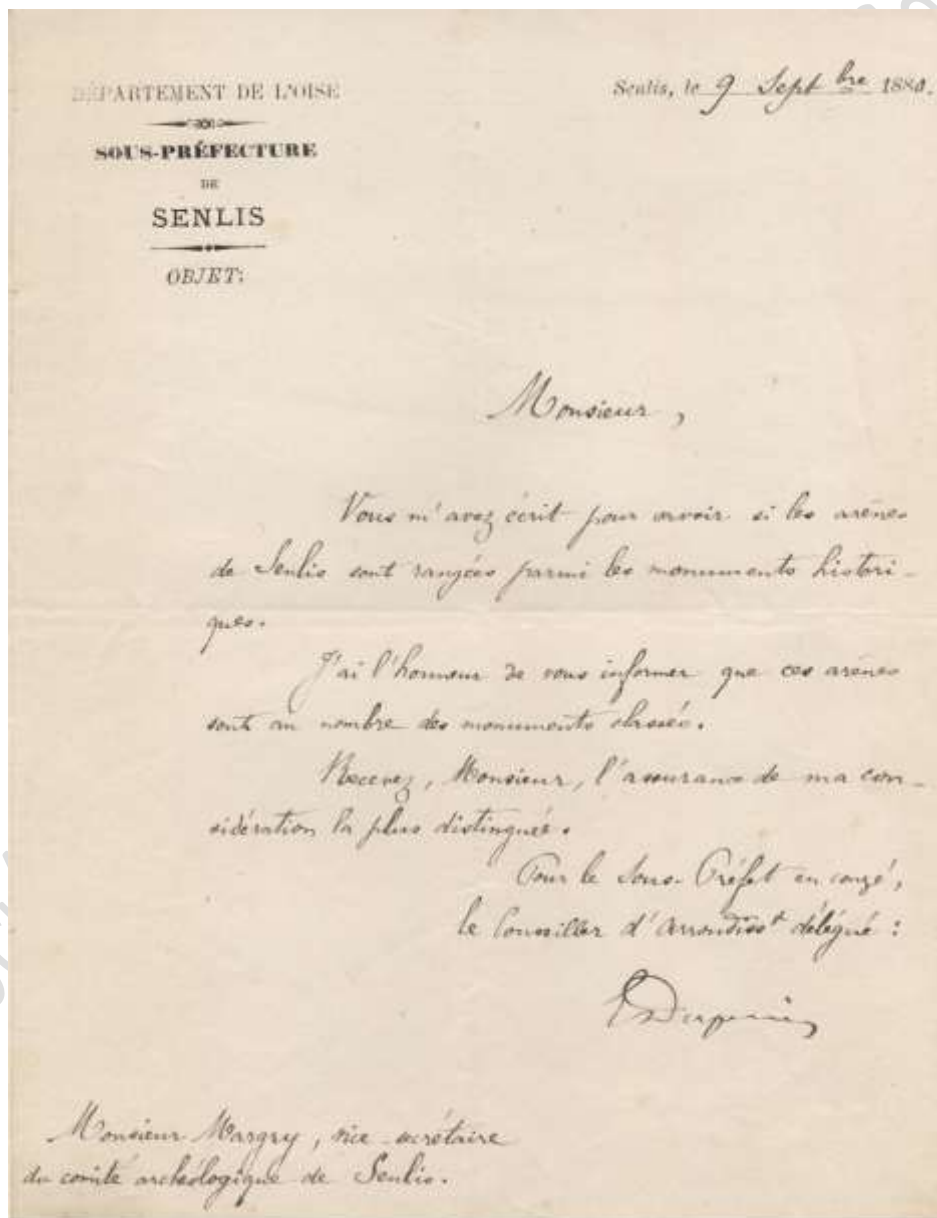 DÉPARTEMENT DE L'OISE
SOUS-PRÉFECTURE
DE
SENLIS
OBJET:
Senlis, le 9 Sept bre 1880.
Monsieur,
Vous m'avez écrit pour savoir si les arènes
de Senlis sont rangées parmi les monuments histori-
ques.
J'ai l'honneur de vous informer que ces arènes
sont au nombre des monuments classés.
Recevez, Monsieur, l'assurance de ma con-
sidération la plus distinguée.
Pour le Sous-Préfet en congé,
le Conseiller d'Arrondisst délégué :
Monsieur Margry, vice-secrétaire
du comité archéologique de Senlis.